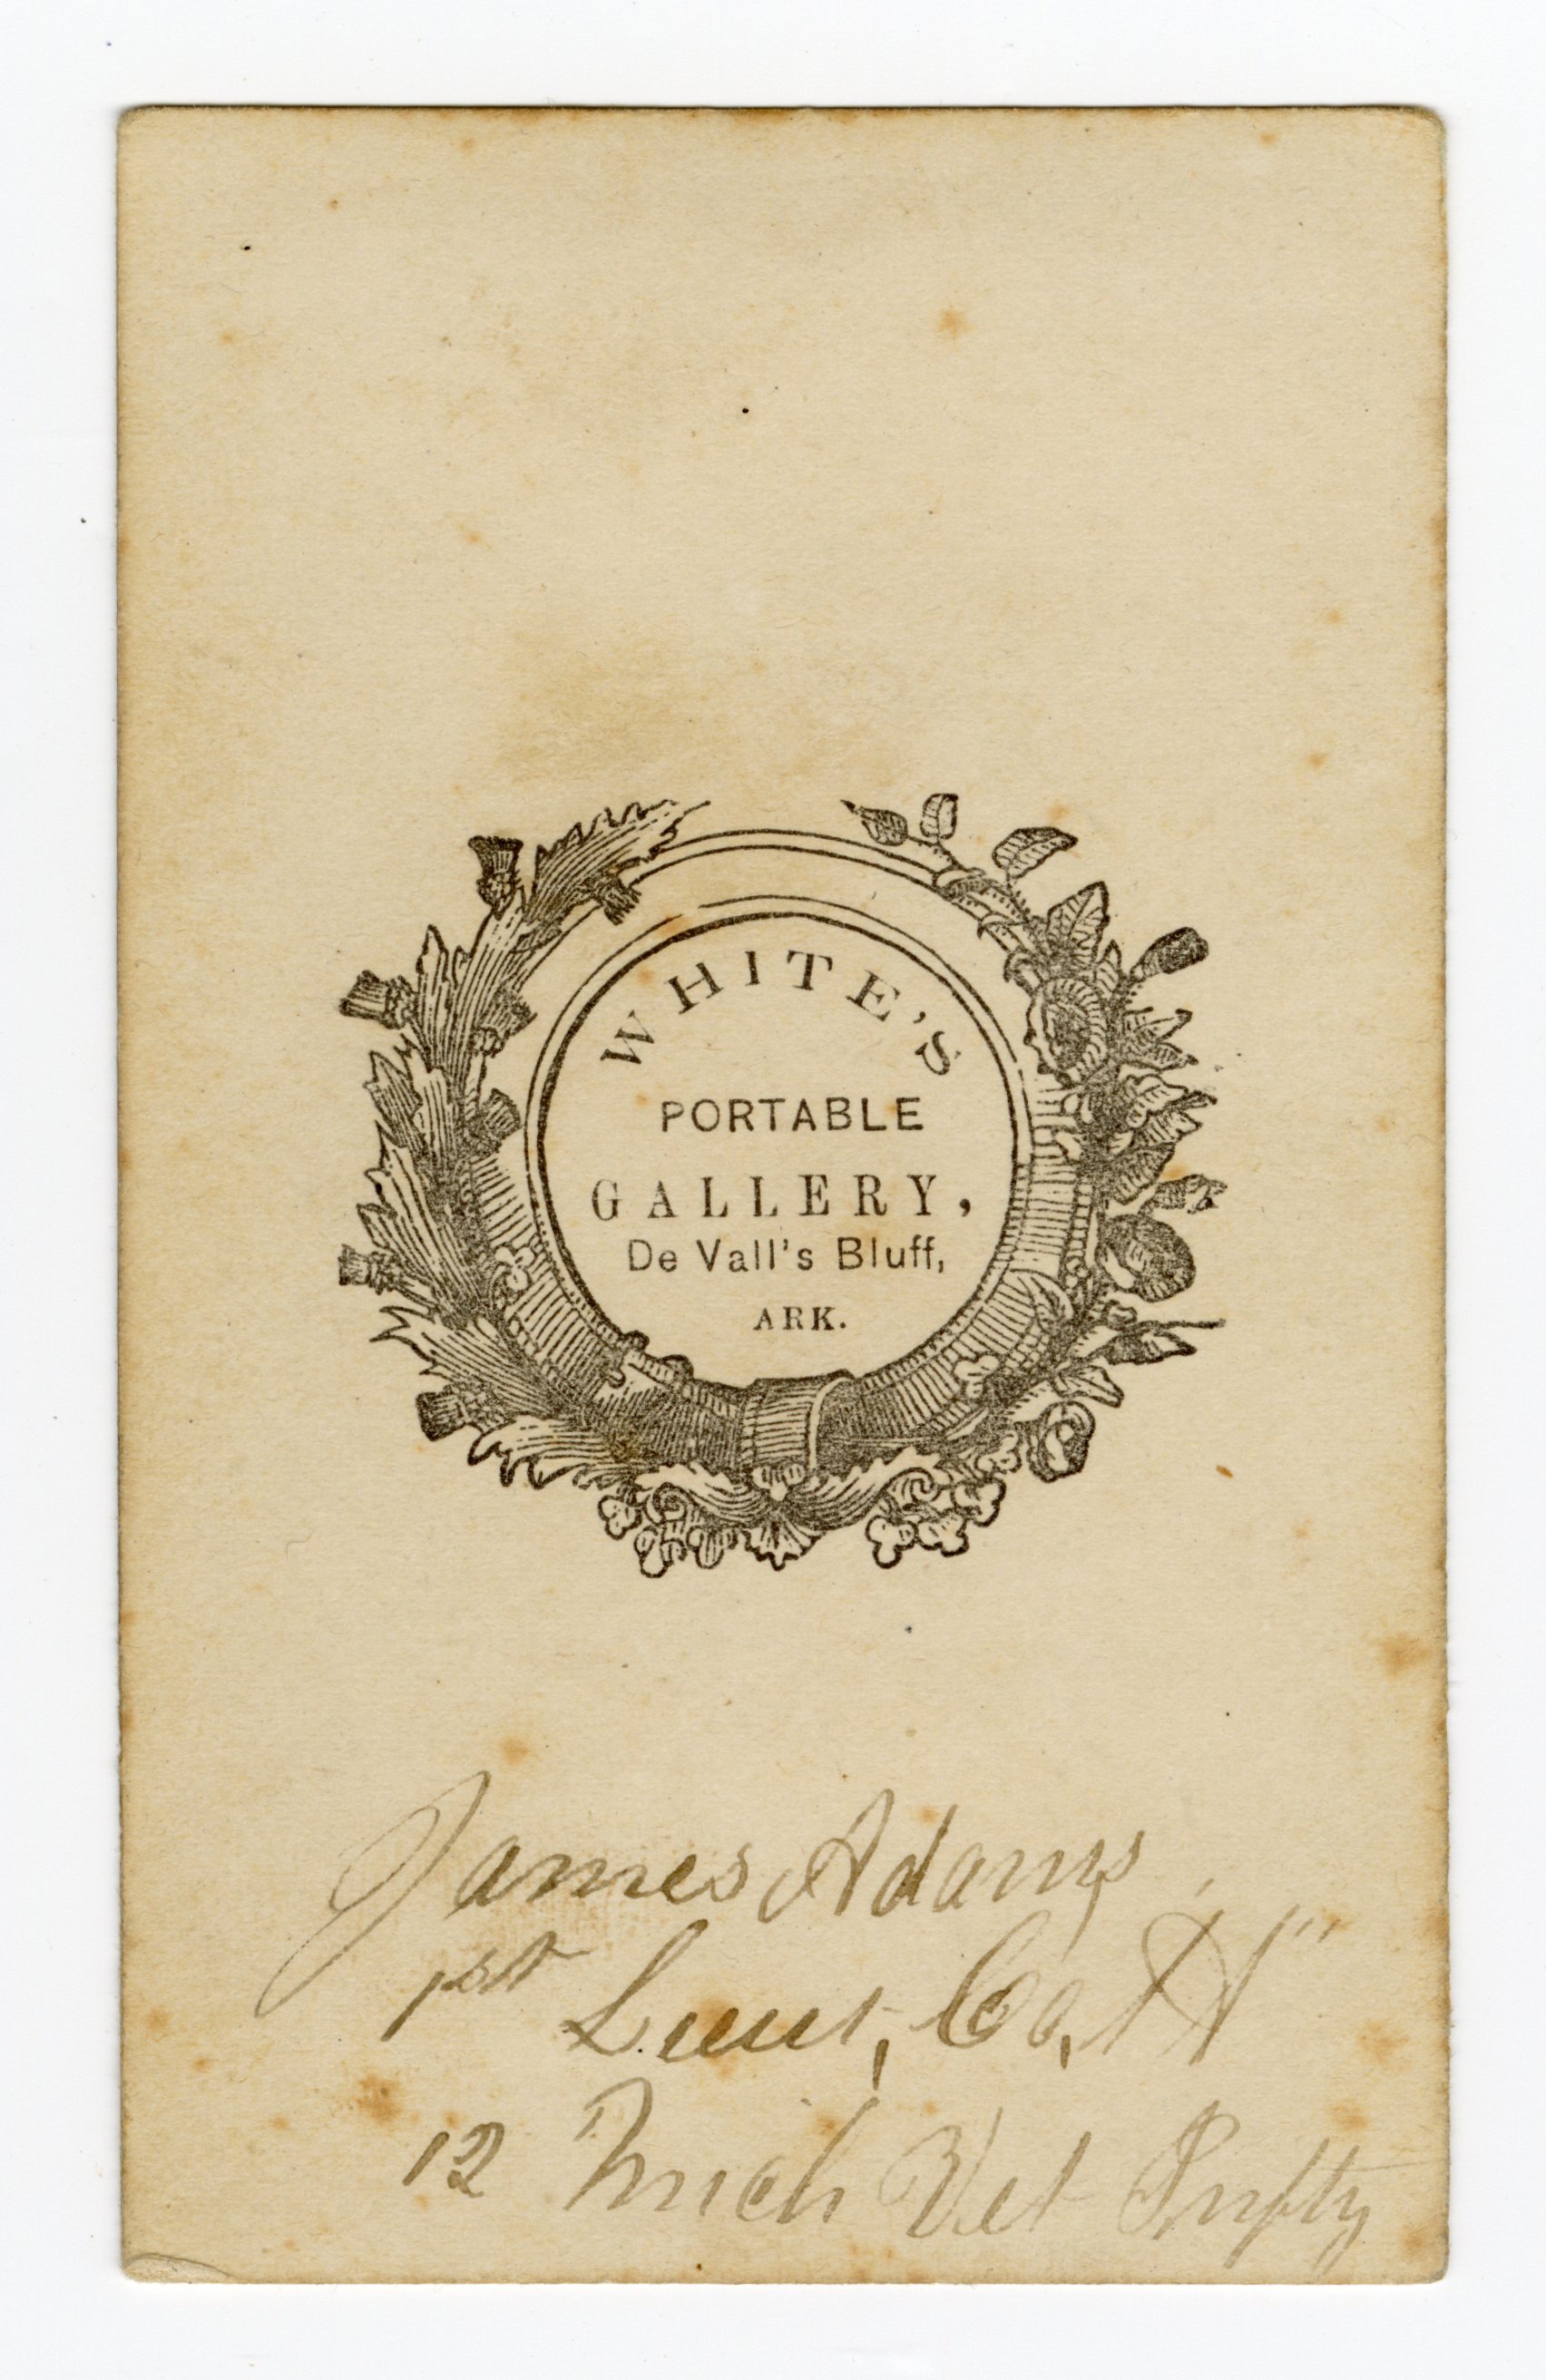 WHITE'S
PORTABLE
GALLERY,
De Vall's Bluff,
ARK.
James Adams
1st Lieut, Co, "H"
12 Mich Vet Infty